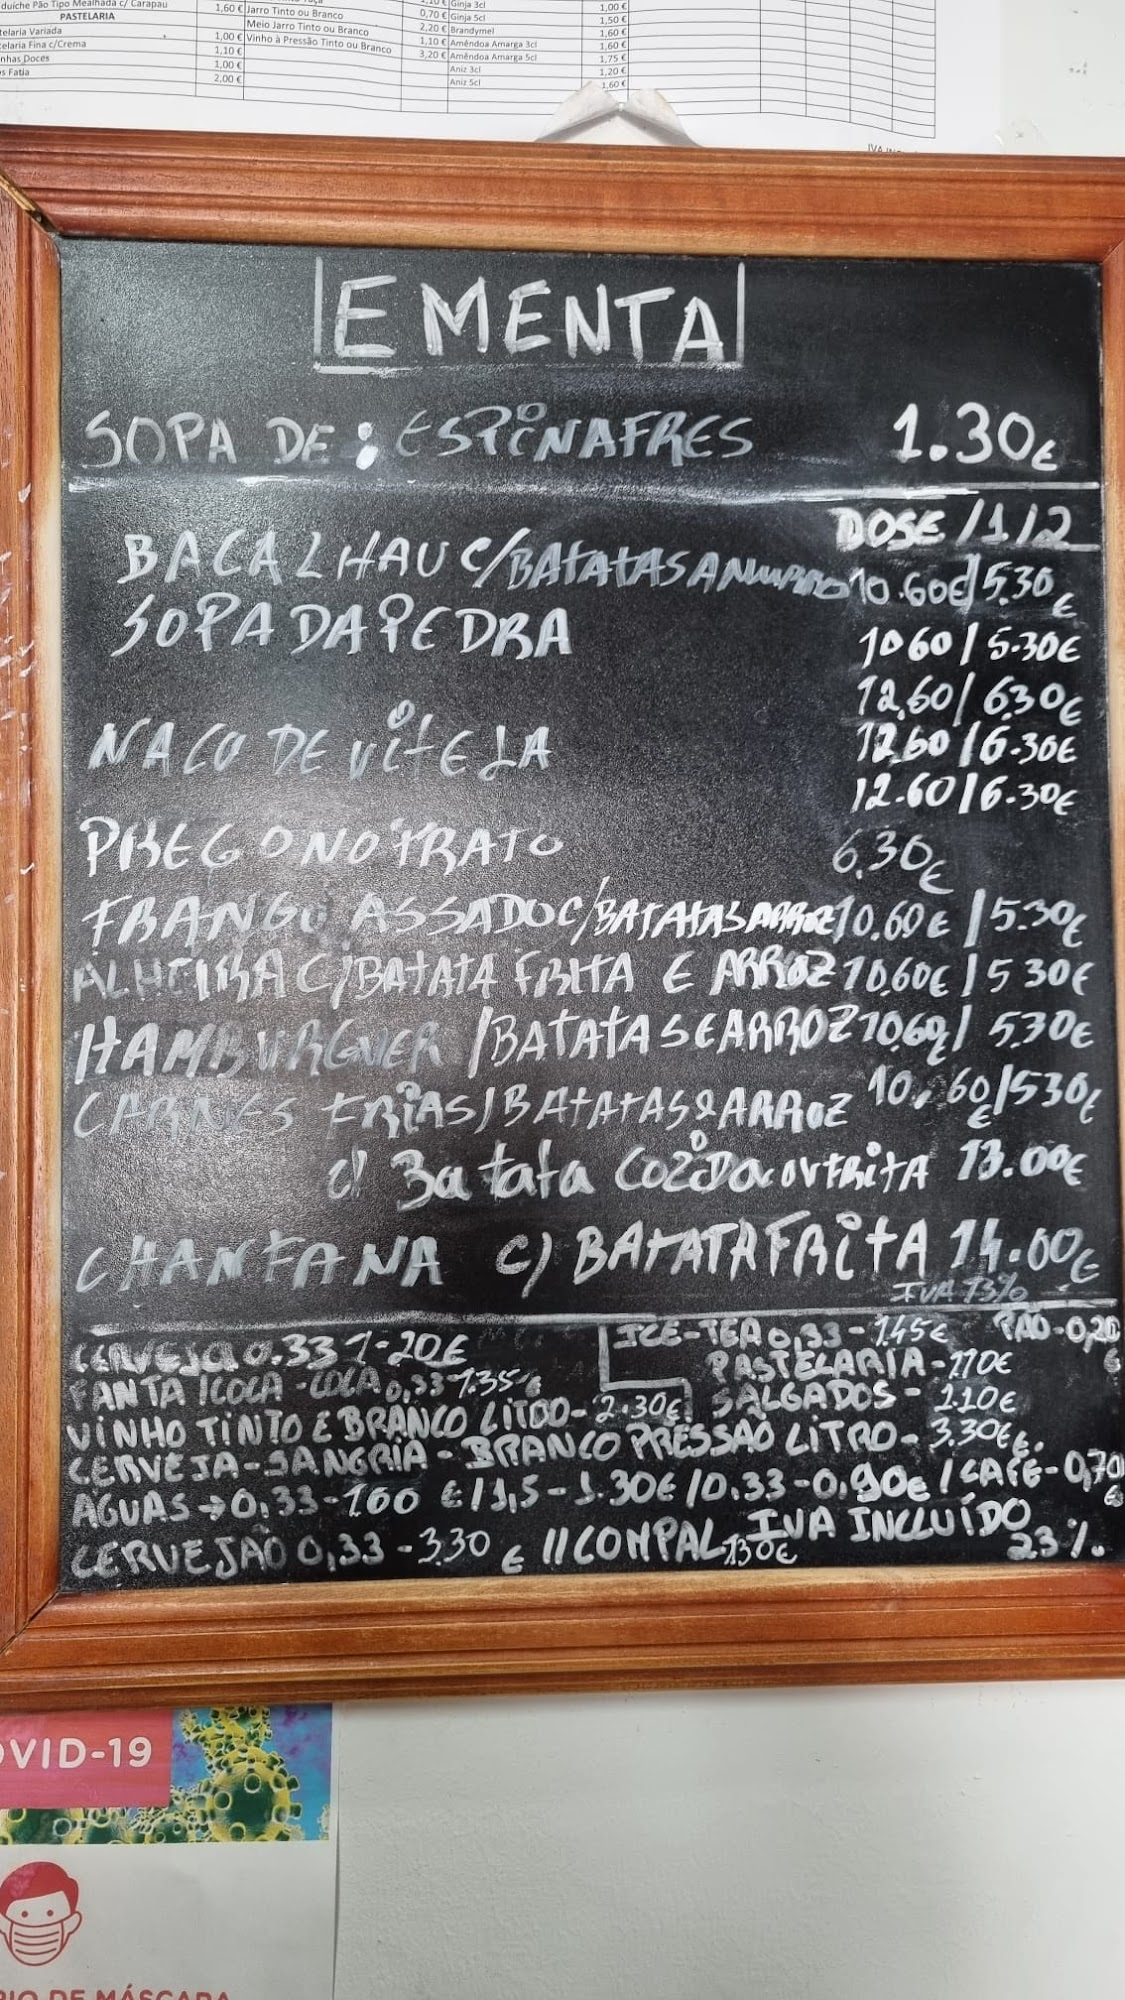 duíche Pão Tipo Mealhada c/ Carapau 1,60 € Jarro Tinto ou Branco 0,70 € Ginja 3cl 1,00 €
PASTELARIA Meio Jarro Tinto ou Branco 2,20 € Ginja 5cl 1,50 €
telaria Variada 1,00 € Vinho à Pressão Tinto ou Branco 1,10 € Brandymel 1,60 €
telaria Fina c/Crema 1,10 € 3,20 € Amêndoa Amarga 3cl 1,60 €
nhas Doces 1,00 € Amêndoa Amarga 5cl 1,75 €
s Fatia 2,00 € Aniz 3cl 1,20 €
Aniz 5cl 1,60 €
EMENTA
SOPA DE : ESPINAFRES 1.30€
DOSE /1/2
BACALHAU C/BATATAS A 10.60€/5.30€
SOPA DA PEDRA 10 60 / 5.30€
12,60/ 6.30€
NACO DE VITELA 12.60 /6.30€
12.60/6.30€
PREGO NO PRATO 6,30€
FRANGO ASSADO C/BATATAS ARROZ 10.60€ /5.30€
ALHEIRA C/BATATA FRITA E ARROZ 10.60€ / 5 30€
HAMBURGUER /BATATAS E ARROZ 10,60€/ 5.30€
CARNES FRIAS/BATATAS & ARROZ 10,60€/530€
c/ Batata COZIDA OU FRITA 13.00€
CHANFANA C/ BATATA FRITA 14.00€
IVA 13%
CERVEJA 0.33 1-20€ ICE-TEA 0,33-1.45€ PÃO-0,20€
FANTA /COCA-COLA 0,33 1.35€ PASTELARIA-1.10€
VINHO TINTO E BRANCO LITRO-2.30€ SALGADOS-1.10€
CERVEJA-SANGRIA-BRANCO PRESSÃO LITRO-3.30€
ÁGUAS → 0,33-100 €/1,5-1.30€/0.33-0,90€ / CAFÉ-0,70€
CERVEJÃO 0,33-3.30 € //COMPAL 1.30€ IVA INCLUÍDO 23%.
OVID-19
RIO DE MÁSCARA